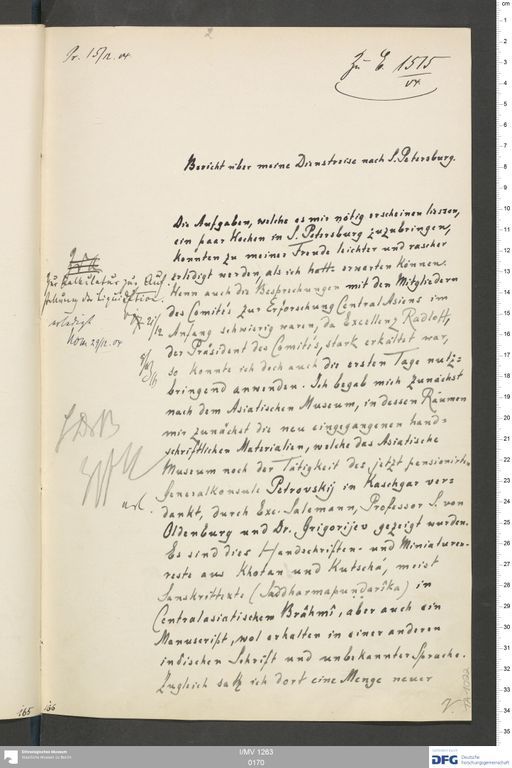 Pr. 15/12. 04.
Zu E. 1515/04.
Bericht über meine Dienstreise nach S. Petersburg.
Die Aufgaben, welche es mir nötig erscheinen liessen,
ein paar Wochen in S. Petersburg zuzubringen,
konnten zu meiner Freude leichter und rascher
erledigt werden, als ich hatte erwarten können.
Wenn auch die Besprechungen mit den Mitgliedern
des Comités zur Erforschung Central Asiens im
Anfang schwierig waren, da Excellenz Radloff,
der Präsident des Comités, stark erkältet war,
so konnte ich doch auch die ersten Tage nutz=
bringend anwenden. Ich begab mich zunächst
nach dem Asiatischen Museum, in dessen Räumen
mir zunächst die neu eingegangenen hand=
schriftlichen Materialien, welche das Asiatische
Museum noch der Tätigkeit des jetzt pensionirten
Generalkonsuls Petrovskij in Kaschgar ver=
dankt, durch Exc. Salemann, Professor S. von
Oldenburg und Dr. Grigorijev gezeigt wurden.
Es sind dies Handschriften- und Miniaturen-
reste aus Khotan und Kutschá, meist
Sanskrittexte (Saddharmapuṇḍarîka) in
Centralasiatischem Brâhmî, aber auch ein
Manuscript, wol erhalten in einer anderen
indischen Schrift und unbekannter Sprache.
Zugleich sah ich dort eine Menge neuer
Zur Kalkulatur zur Auf
stellung der Liquidation.
erledigt
165
166
TA 1022
Ethnologisches Museum
Staatliche Museen zu Berlin
I/MV 1263
0170
DFG Deutsche
Forschungsgemeinschaft
cm
1
2
3
4
5
6
7
8
9
10
11
12
13
14
15
16
17
18
19
20
21
22
23
24
25
26
27
28
29
30
31
32
33
34
35